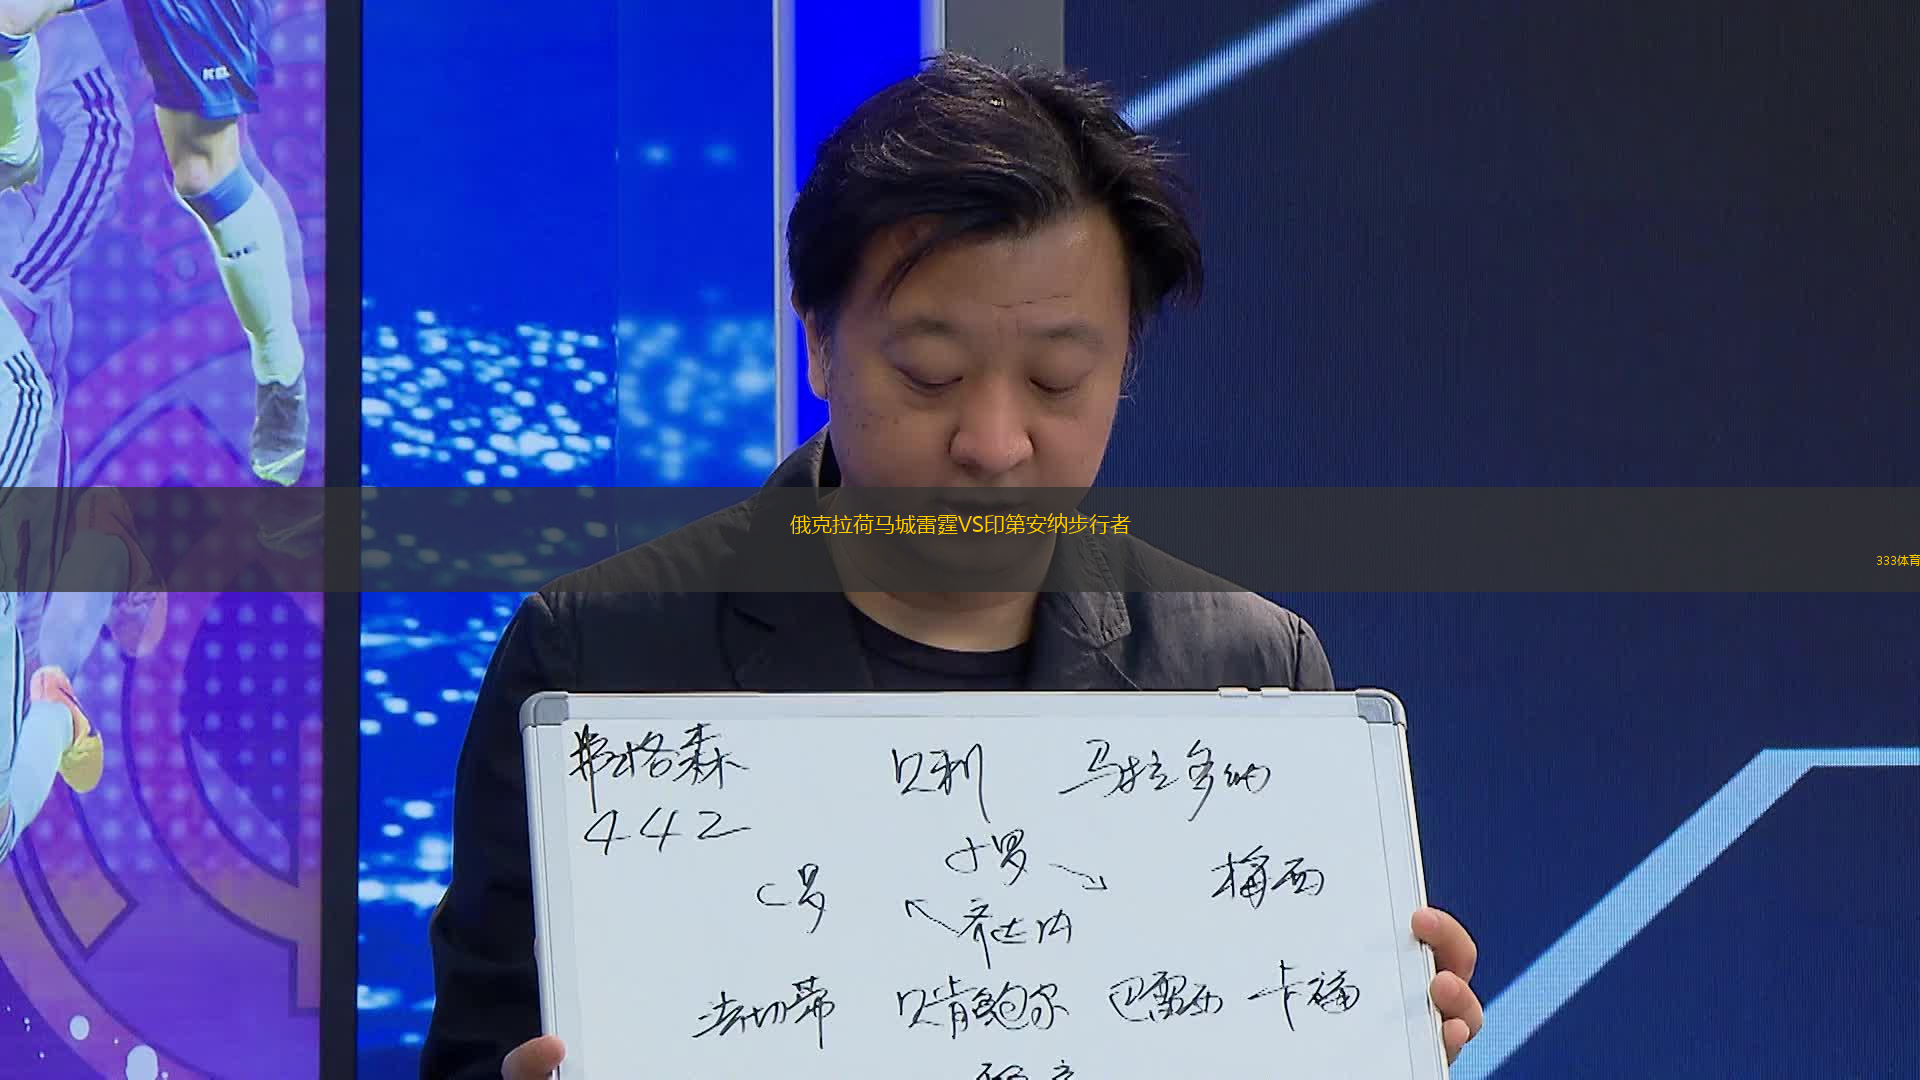 俄克拉荷马城雷霆VS印第安纳步行者
333体育
弗格森 贝利 马拉多纳
442
小罗
C罗 梅西
齐达内
法切蒂 贝肯鲍尔 巴雷西 卡福